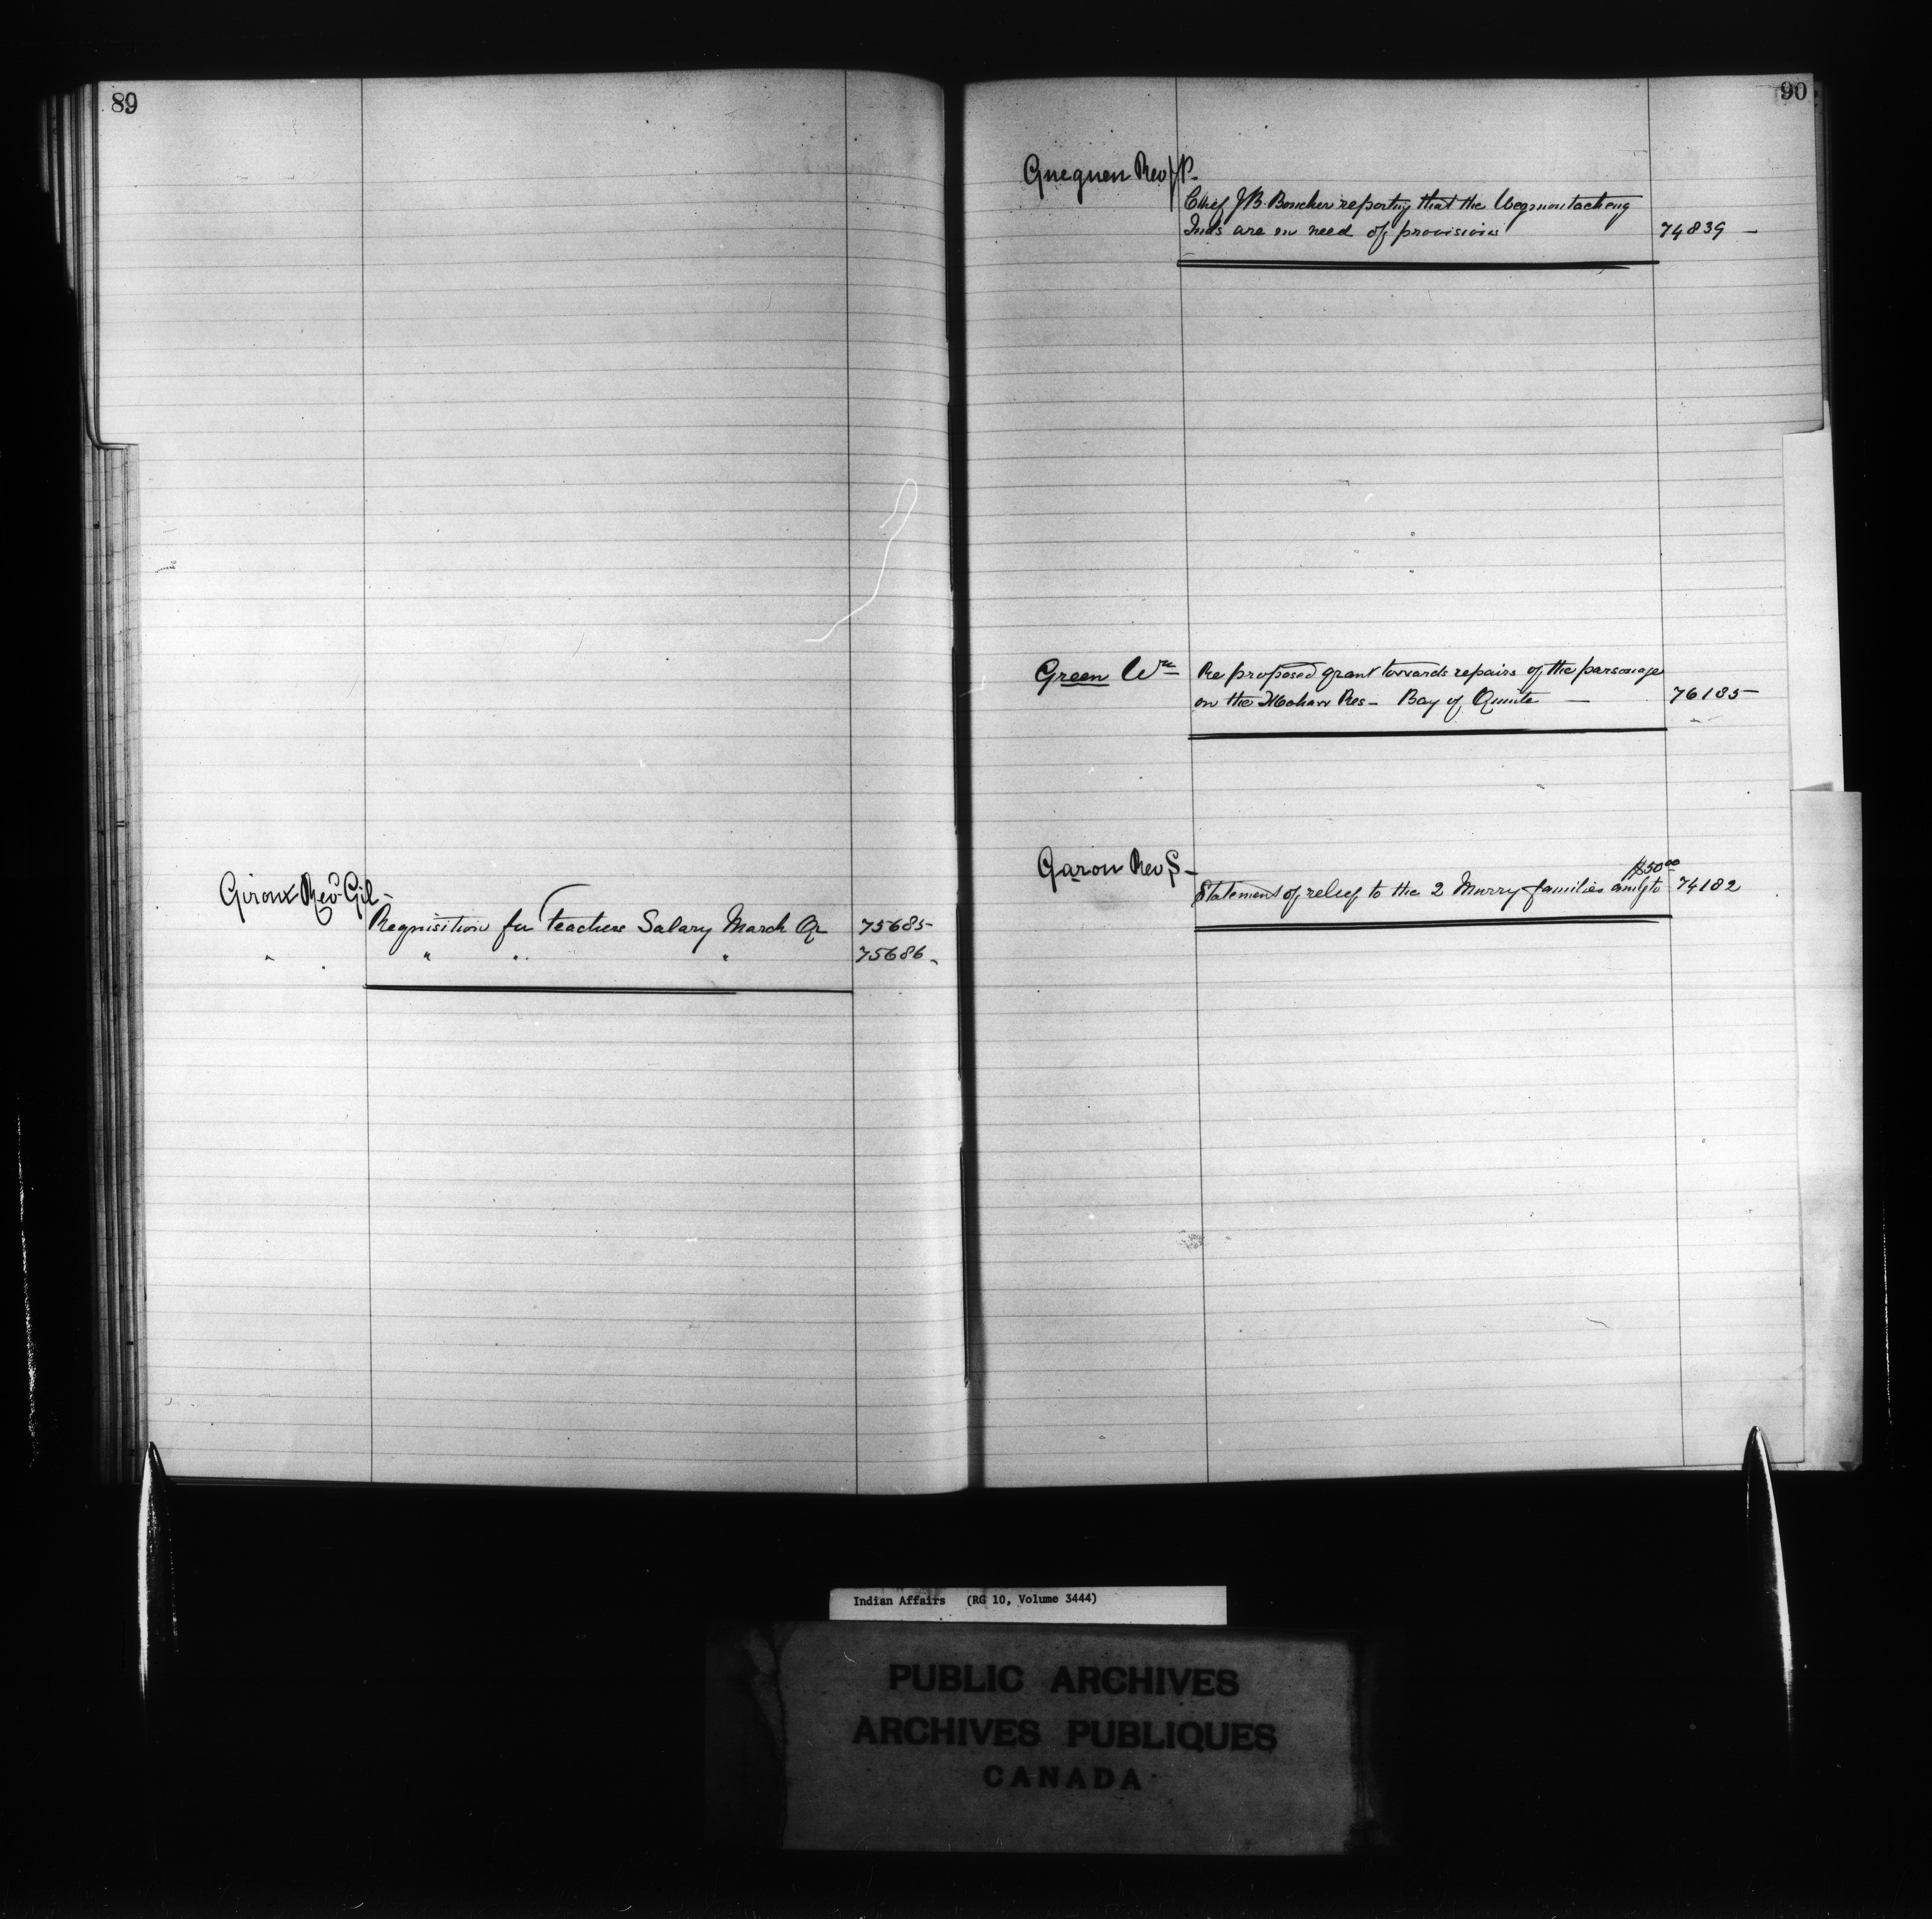 89
Giroux Revd Gil-
Requisition for Teachers Salary March Qr 75685-
" " " " " 75686-
90
Gueguen Rev J P-
Chief J B. Boucher reporting that the Wegmontacheng
Inds are in need of provisions 74839 -
Green Wm Re proposed grant towards repairs of the parsonage
on the Mohawk Res- Bay of Quinte - 76185-
Garon Rev S- $50 00
Statement of relief to the 2 Murry families amtg to 74182
Indian Affairs (RG 10, Volume 3444)
PUBLIC ARCHIVES
ARCHIVES PUBLIQUES
CANADA